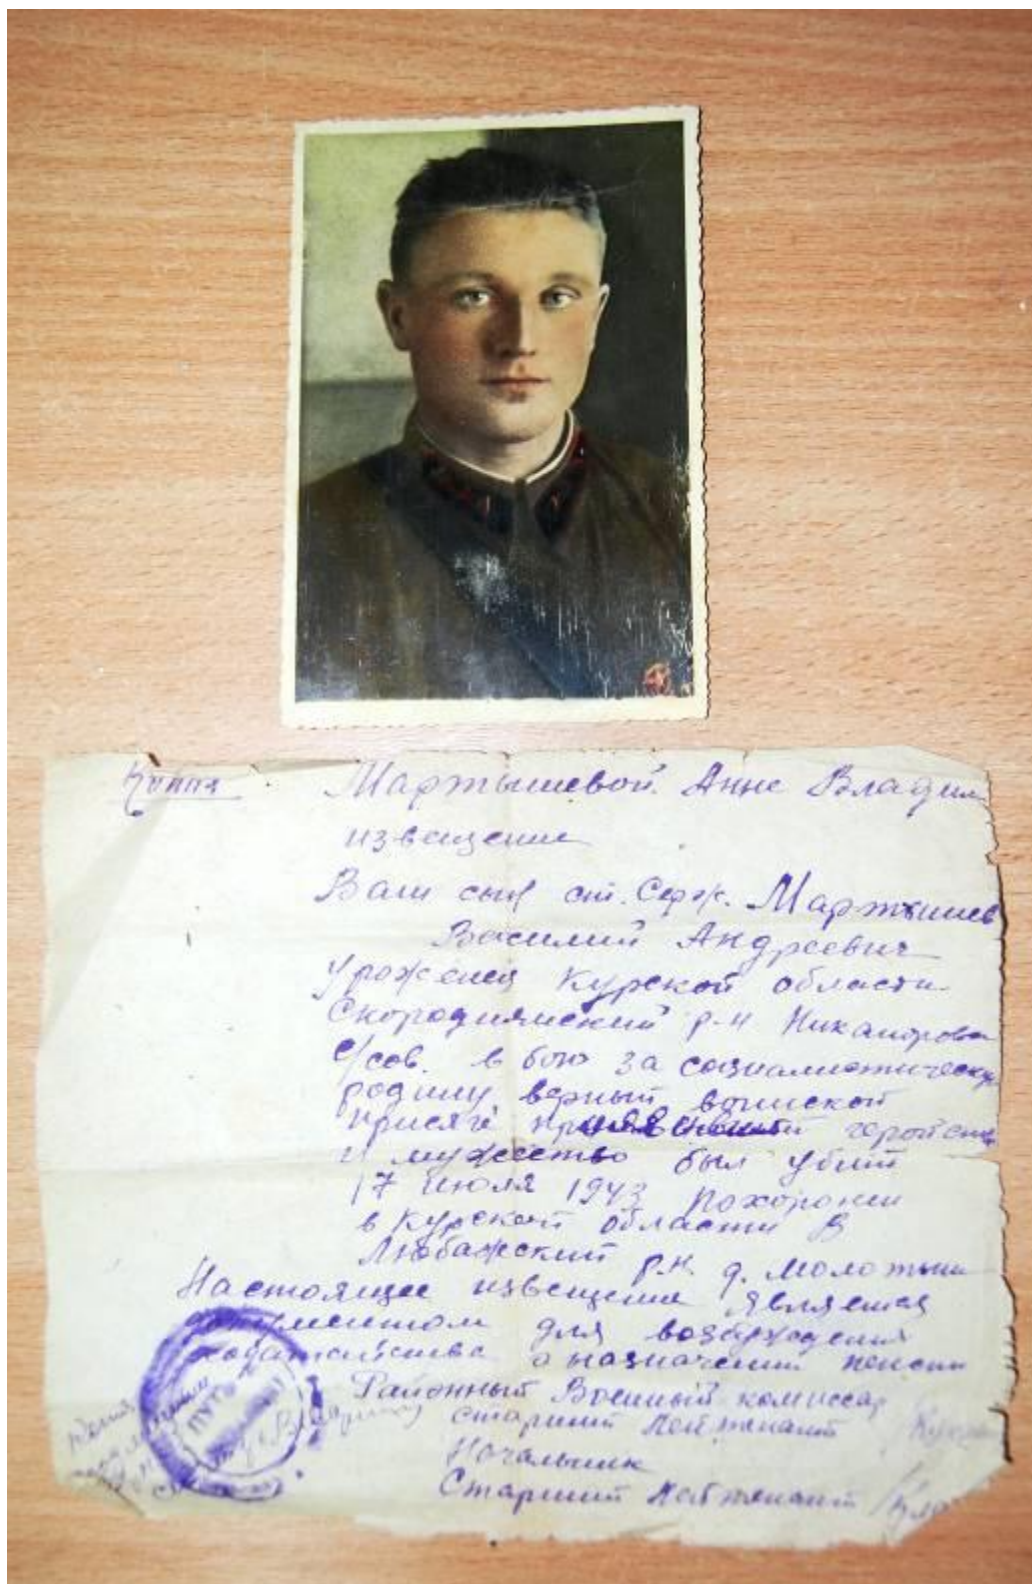 Копия Мартышевой Анне Владим
извещение
Ваш сын ст. Серж. Мартышев
Василий Андреевич
Уроженец Курской области
Скороднянский р-н Никаноровс
с/сов. в бою за социалистическу
родину верный воинской
присяге геройств
и мужество был убит
17 июля 1943 похоронен
в Курской области В
Любажский р.н. д. Молотычи
Настоящее извещение является
документом для возбуждения
ходатайства о назначении пенсии
Районный Военный комиссар
старший лейтенант
Начальник
Старший лейтенант